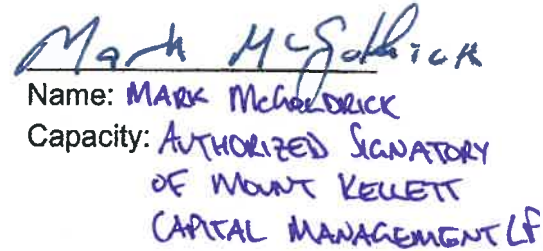 Mark McGoldrick
Name: MARK McGOLDRICK
Capacity: AUTHORIZED SIGNATORY
OF MOUNT KELLETT
CAPITAL MANAGEMENT LP